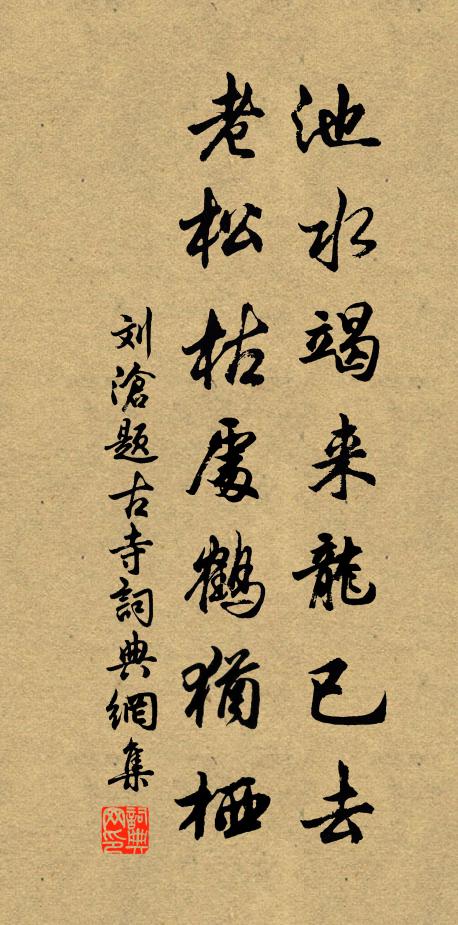 池水竭来龍已去
老松枯處鶴猶栖
刘滄題古寺詞典網集
詞典网印